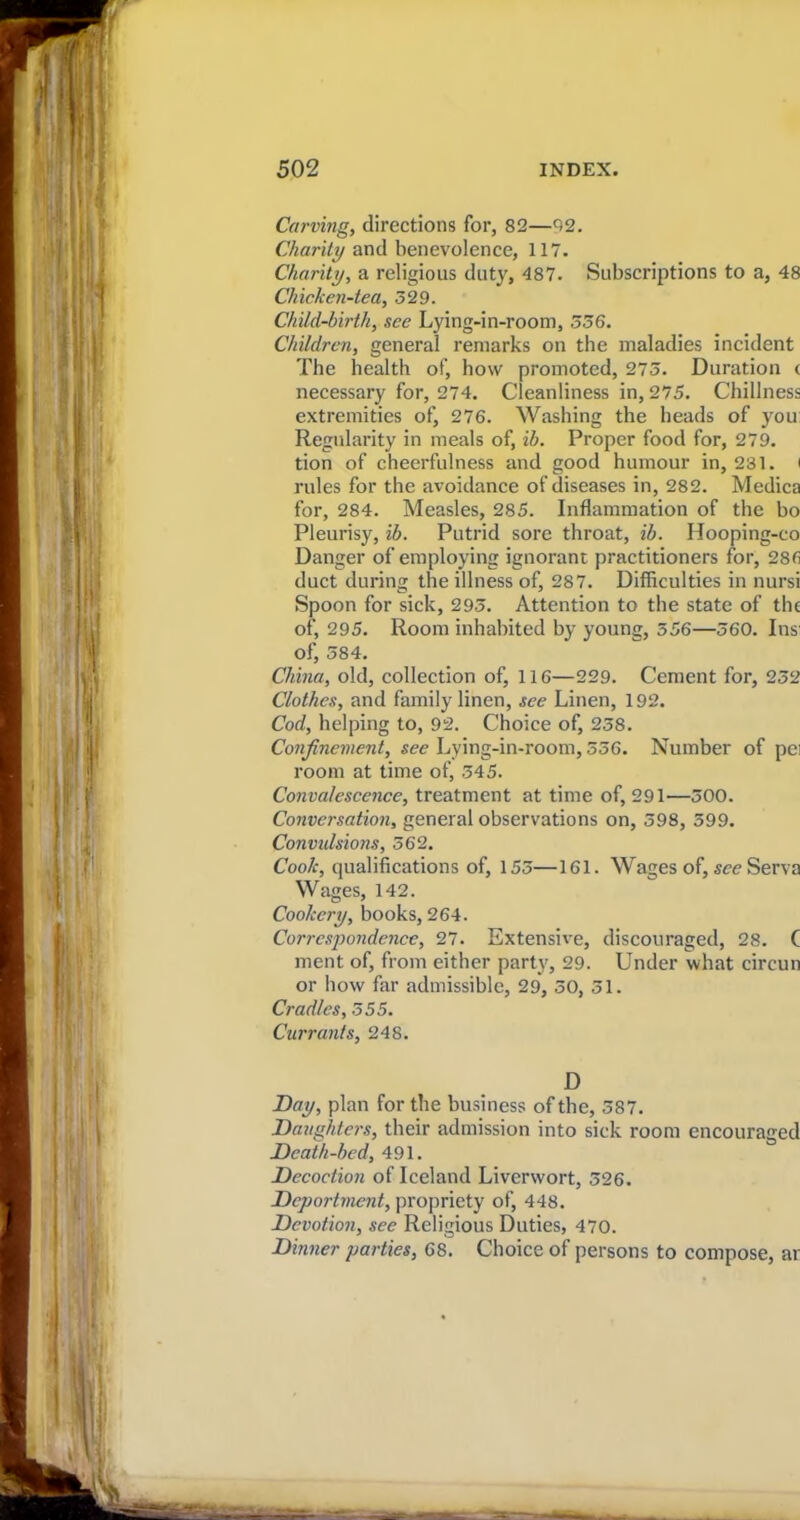 502 INDEX.
Carving, directions for, 82—92.
Charity and benevolence, 117.
Charity, a religious duty, 487. Subscriptions to a, 48
Chicken-tea, 329.
Child-birth, see Lying-in-room, 336.
Children, general remarks on the maladies incident
The health of, how promoted, 273. Duration
necessary for, 274. Cleanliness in, 275. Chillness
extremities of, 276. Washing the heads of you
Regularity in meals of, ib. Proper food for, 279.
tion of cheerfulness and good humour in, 281.
rules for the avoidance of diseases in, 282. Medica
for, 284. Measles, 285. Inflammation of the bo
Pleurisy, ib. Putrid sore throat, ib. Hooping-co
Danger of employing ignorant practitioners for, 286
duct during the illness of, 287. Difficulties in nursi
Spoon for sick, 293. Attention to the state of the
of, 295. Room inhabited by young, 356—360. Ins
of, 384.
China, old, collection of, 116—229. Cement for, 232
Clothes, and family linen, see Linen, 192.
Cod, helping to, 92. Choice of, 238.
Confinement, see Lying-in-room, 336. Number of per
room at time of, 345.
Convalescence, treatment at time of, 291—300.
Conversation, general observations on, 398, 399.
Convulsions, 362.
Cook, qualifications of, 153—161. Wages of, see Serva
Wages, 142.
Cookery, books, 264.
Correspondence, 27. Extensive, discouraged, 28. C
ment of, from either party, 29. Under what circum
or how far admissible, 29, 30, 31.
Cradles, 355.
Currants, 248.
D
Day, plan for the business of the, 387.
Daughters, their admission into sick room encouraged
Death-bed, 491.
Decoction of Iceland Liverwort, 326.
Deportment, propriety of, 448.
Devotion, see Religious Duties, 470.
Dinner parties, 68. Choice of persons to compose, ar